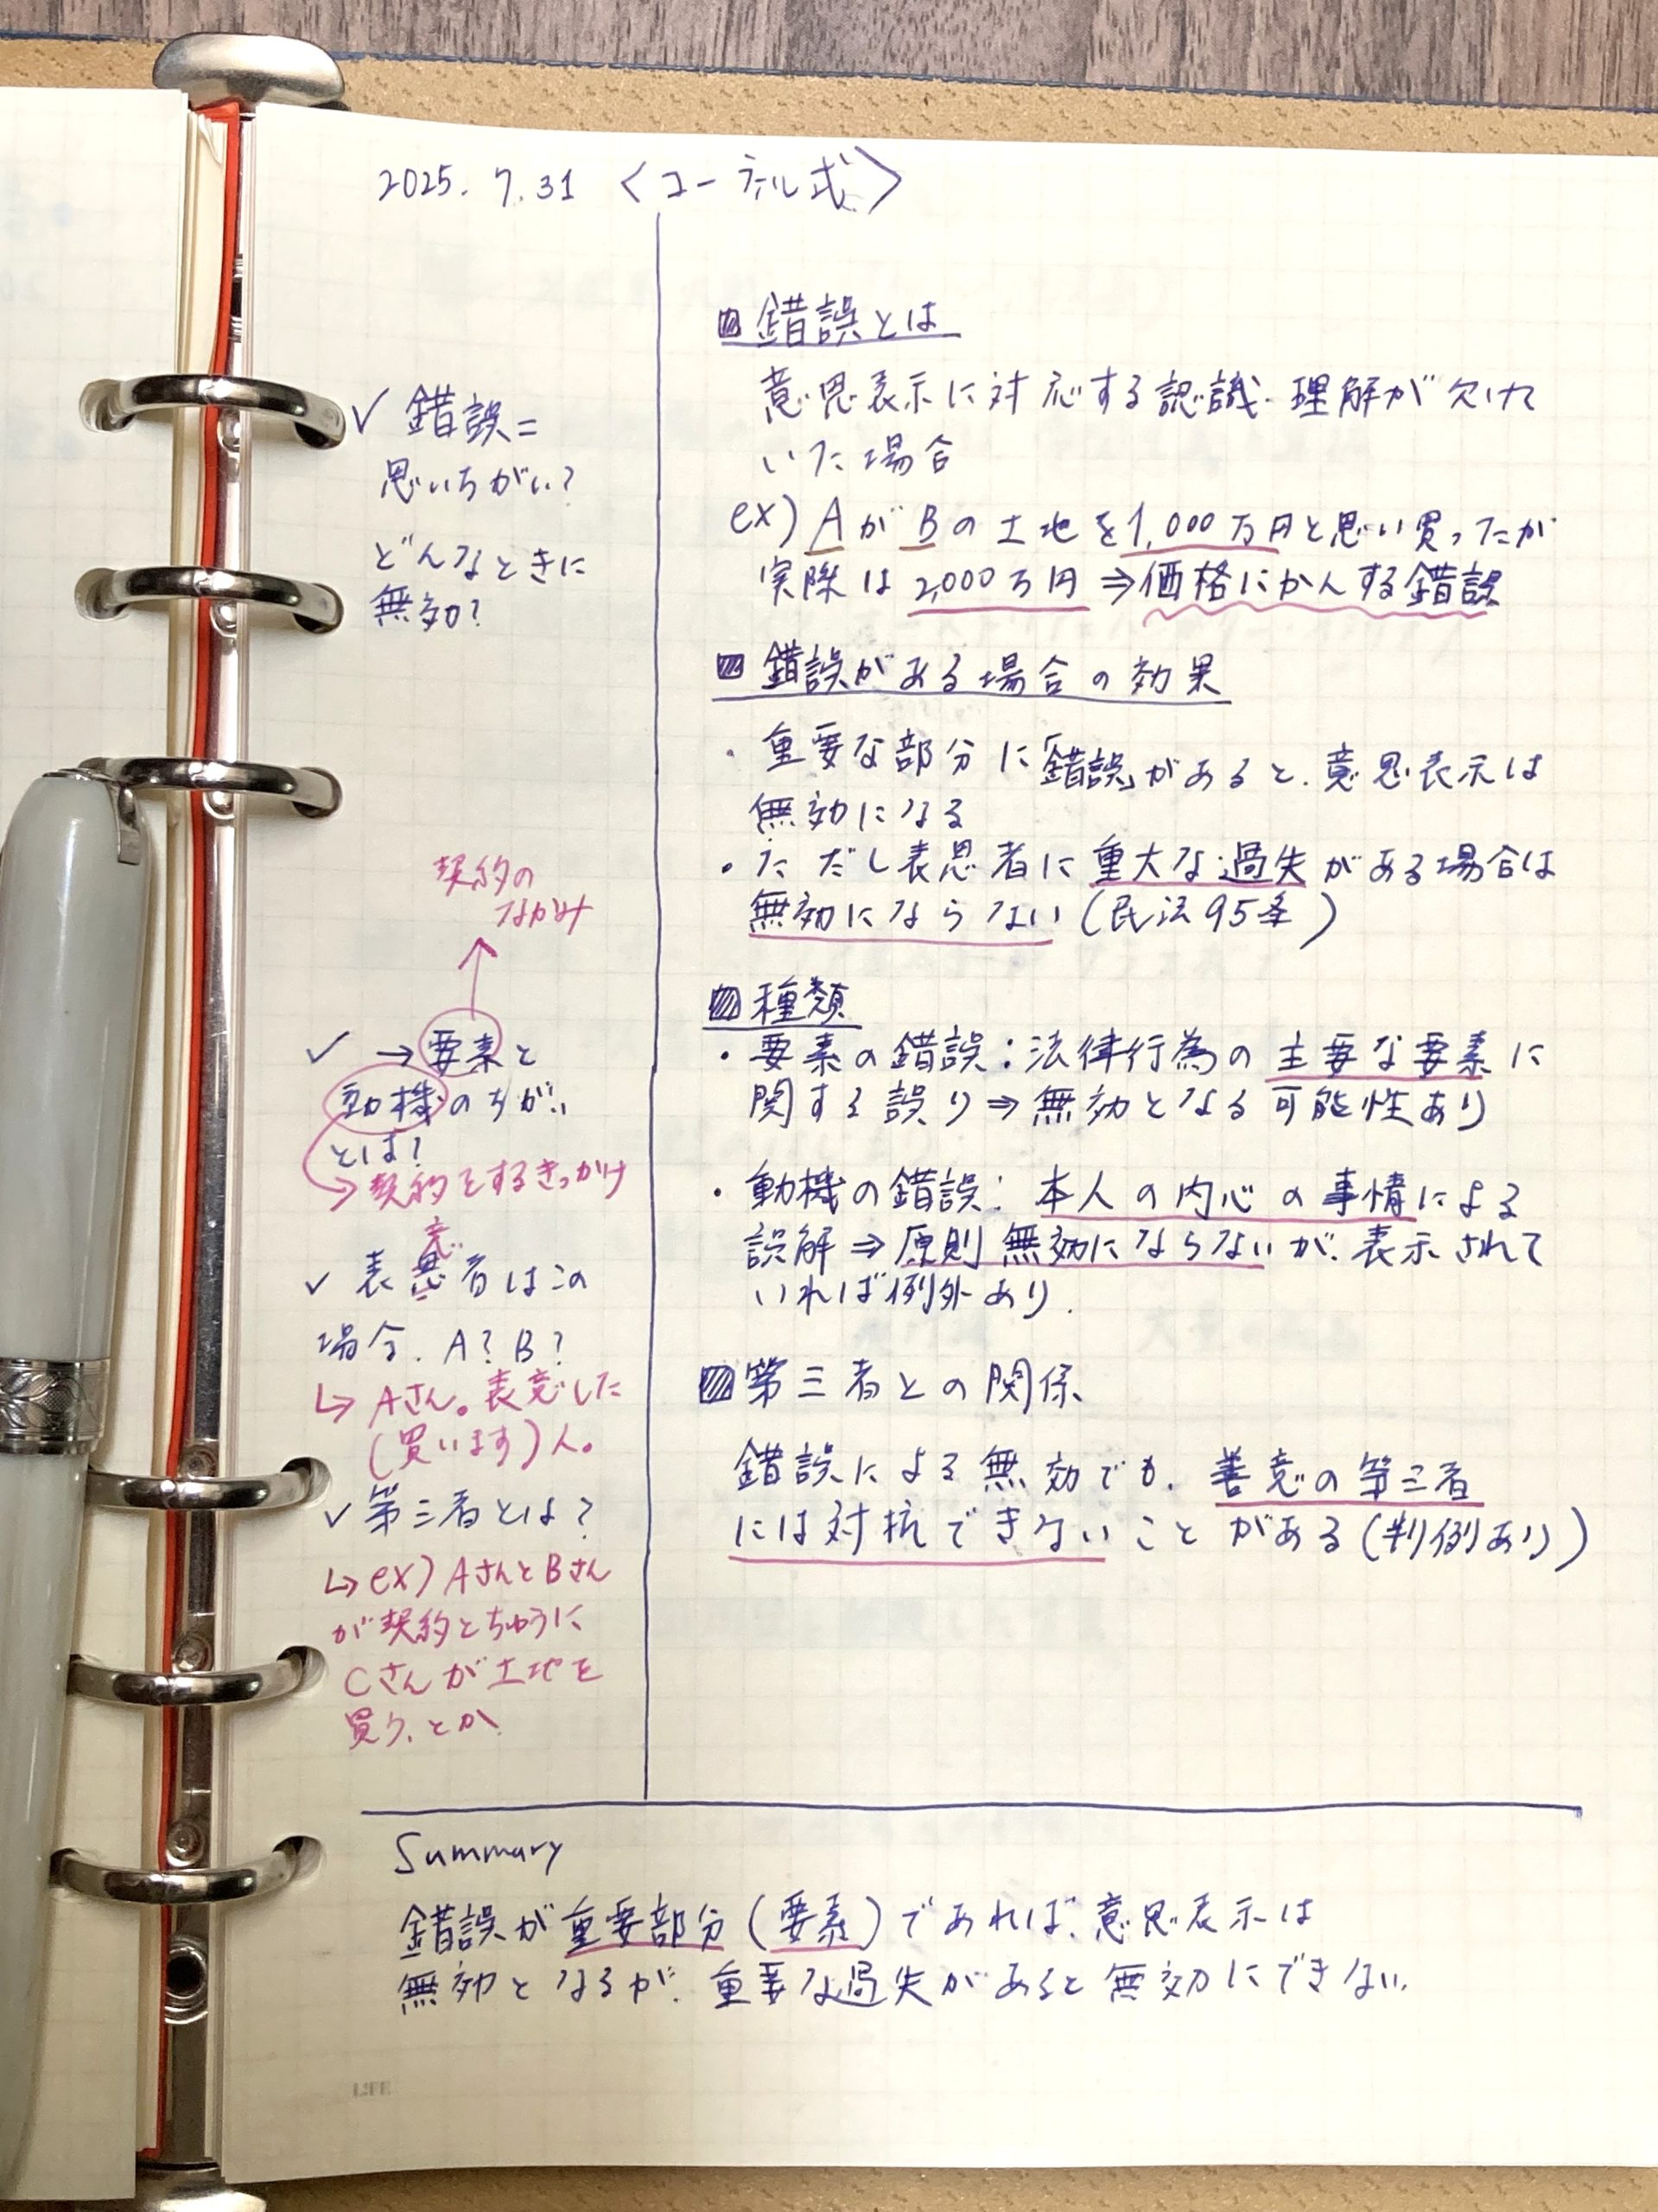 2025.7.31 〈コーネル式〉
✓ 錯誤=
思いちがい?
どんなときに
無効?
契約の
なかみ
✓ →要素と
動機のちがい
とは?
→契約をするきっかけ
意
✓ 表思者はこの
場合、A?B?
↳ Aさん。表意した
(買います)人。
✓ 第三者とは?
↳ ex) AさんとBさん
が契約とちゅうに
Cさんが土地を
買う、とか
錯誤とは
意思表示に対応する認識・理解が欠けて
いた場合
ex) AがBの土地を1,000万円と思い買ったが
実際は2,000万円⇒価格にかんする錯誤
錯誤がある場合の効果
・重要な部分に「錯誤」があると、意思表示は
無効になる
・ただし表思者に重大な過失がある場合は
無効にならない(民法95条)
種類
・要素の錯誤:法律行為の主要な要素に
関する誤り⇒無効となる可能性あり
・動機の錯誤:本人の内心の事情による
誤解⇒原則無効にならないが、表示されて
いれば例外あり.
第三者との関係
錯誤による無効でも、善意の第三者
には対抗できないことがある(判例あり)
Summary
錯誤が重要部分(要素)であれば、意思表示は
無効となるが、重要な過失があると無効にできない.
LIFE